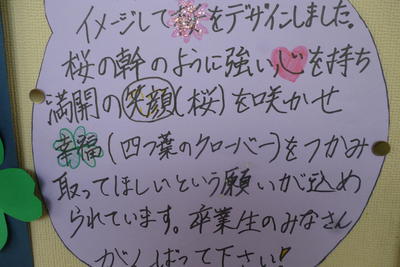 イメージして をデザインしました。
桜の幹のように強い心を持ち
満開の笑顔(桜)を咲かせ
幸福(四つ葉のクローバー)をつかみ
取ってほしいという願いが込め
られています。卒業生のみなさん
がんばって下さい!